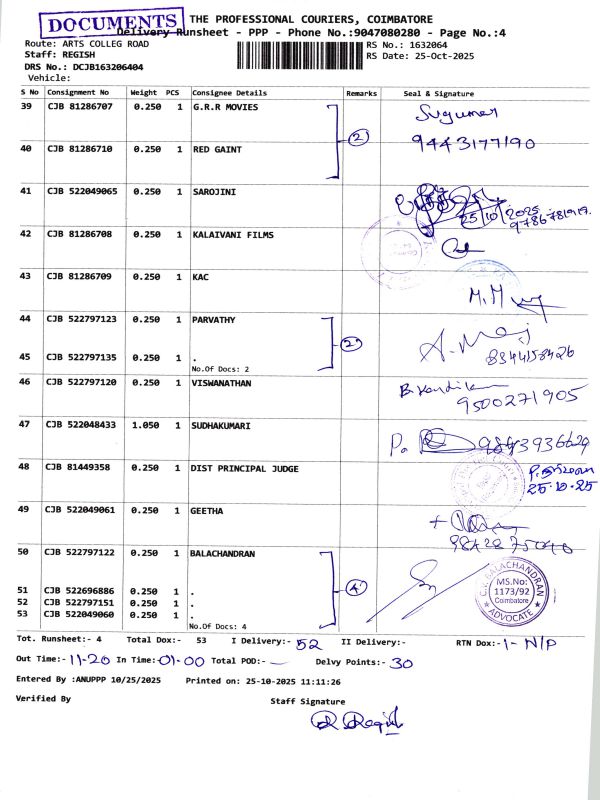 DOCUMENTS
THE PROFESSIONAL COURIERS, COIMBATORE
Delivery Runsheet - PPP - Phone No.:9047080280 - Page No.:4
Route: ARTS COLLEG ROAD
RS No.: 1632064
Staff: REGISH
RS Date: 25-Oct-2025
DRS No.: DCJB163206404
Vehicle:
S No Consignment No Weight PCS Consignee Details Remarks Seal & Signature
39 CJB 81286707 0.250 1 G.R.R MOVIES Sugumar
2
40 CJB 81286710 0.250 1 RED GAINT 9443177190
41 CJB 522049065 0.250 1 SAROJINI
25/10/2025
42 CJB 81286708 0.250 1 KALAIVANI FILMS
43 CJB 81286709 0.250 1 KAC
44 CJB 522797123 0.250 1 PARVATHY
2
45 CJB 522797135 0.250 1 . 8344158426
No.Of Docs: 2
46 CJB 522797120 0.250 1 VISWANATHAN
9500271905
47 CJB 522048433 1.050 1 SUDHAKUMARI
48 CJB 81449358 0.250 1 DIST PRINCIPAL JUDGE
25.10.25
49 CJB 522049061 0.250 1 GEETHA
50 CJB 522797122 0.250 1 BALACHANDRAN
51 CJB 522696886 0.250 1 .
4
52 CJB 522797151 0.250 1 .
53 CJB 522049060 0.250 1 .
No.Of Docs: 4
C.V. BALACHANDRAN
MS.No:
1173/92
Coimbatore
ADVOCATE
Tot. Runsheet:- 4 Total Dox:- 53 I Delivery:- 52 II Delivery:- RTN Dox:- 1- N/P
Out Time:- 11-20 In Time:- 01-00 Total POD:- Delvy Points:- 30
Entered By :ANUPPP 10/25/2025 Printed on: 25-10-2025 11:11:26
Verified By
Staff Signature
R Regish